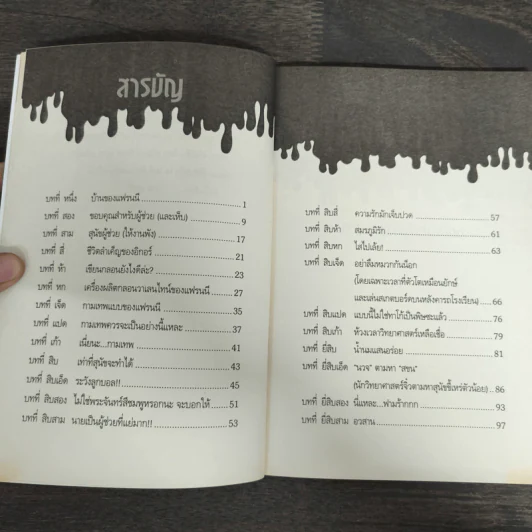 สารบัญ
บทที่ หนึ่ง บ้านของแฟรนนี 1
บทที่ สอง ขอบคุณสำหรับผู้ช่วย (และเห็บ) 9
บทที่ สาม สุนัขผู้ช่วย (ให้งานพัง) 17
บทที่ สี่ ชีวิตลำเค็ญของอิกอร์ 21
บทที่ ห้า เขียนกลอนยังไงดีล่ะ? 23
บทที่ หก เครื่องผลิตกลอนวาเลนไทน์ของแฟรนนี 27
บทที่ เจ็ด กามเทพแบบของแฟรนนี 35
บทที่ แปด กามเทพควรจะเป็นอย่างนี้แหละ 37
บทที่ เก้า เนี่ยนะ...กามเทพ 41
บทที่ สิบ เท่าที่สุนัขจะทำได้ 43
บทที่ สิบเอ็ด ระวังลูกบอล!! 45
บทที่ สิบสอง ไม่ใช่พระจันทร์สีชมพูหรอกนะ จะบอกให้ 51
บทที่ สิบสาม นายเป็นผู้ช่วยที่แย่มาก!! 53
บทที่ สิบสี่ ความรักมักเจ็บปวด 57
บทที่ สิบห้า สมรภูมิรัก 61
บทที่ สิบหก ไสไปเล้ย! 63
บทที่ สิบเจ็ด อย่าลืมหมวกกันน็อก
(โดยเฉพาะเวลาที่ตัวโตเหมือนยักษ์
และเล่นสเกตบอร์ดบนหลังคารถโรงเรียน) 66
บทที่ สิบแปด แบบนี้ไม่ใช่ท่าโก้เป็นพิษซะแล้ว 76
บทที่ สิบเก้า ห้วงเวลาวิทยาศาสตร์เหลือเชื่อ 79
บทที่ ยี่สิบ น้ำนมแสนอร่อย 81
บทที่ ยี่สิบเอ็ด "นวจ" ตามหา "สซน"
(นักวิทยาศาสตร์จิ๋วตามหาสุนัขขี้เหร่ตัวน้อย) 86
บทที่ ยี่สิบสอง นี่แหละ...ฟามร้ากกก 93
บทที่ ยี่สิบสาม อวสาน 97